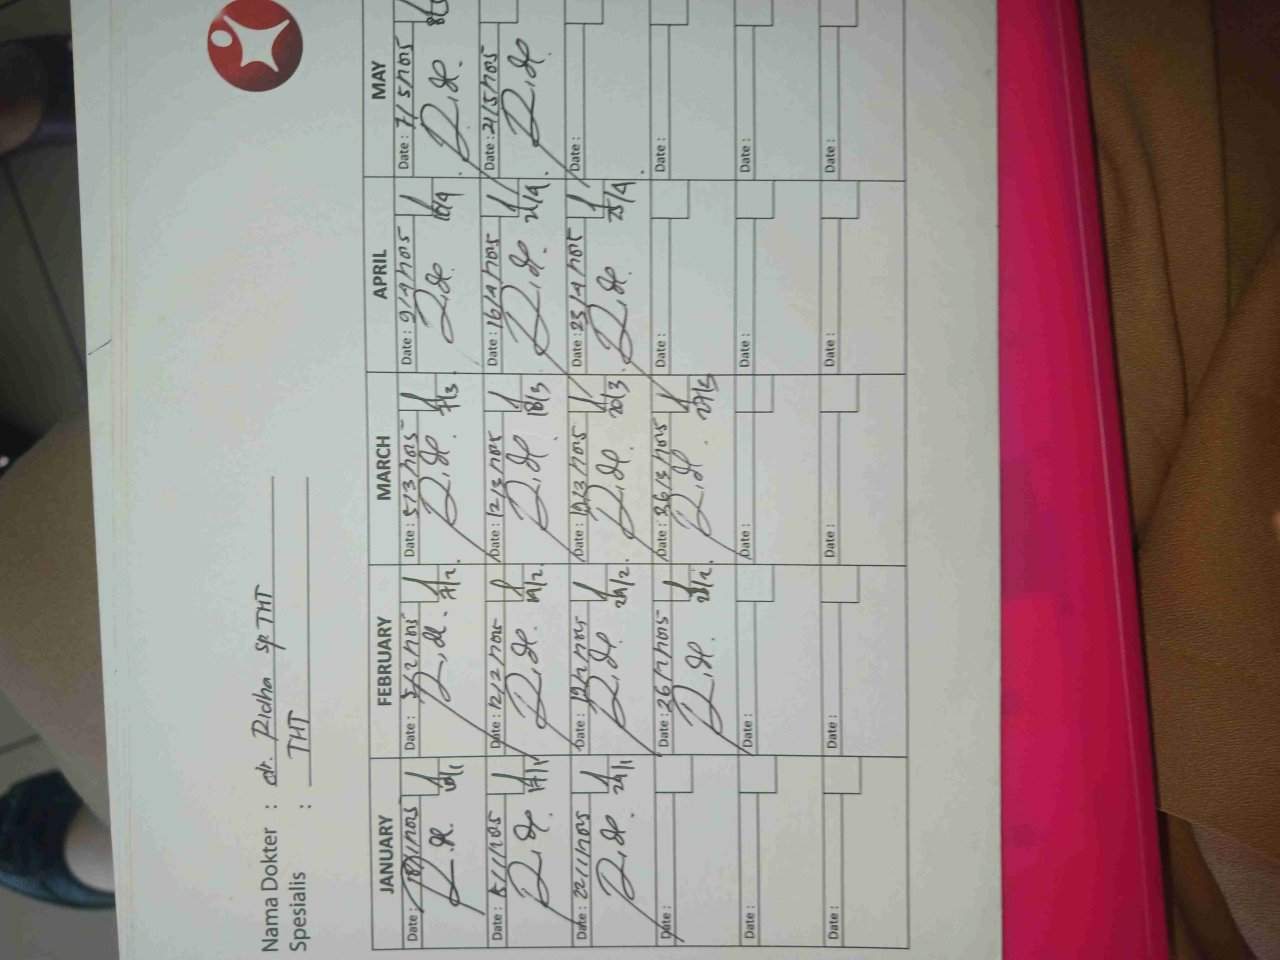 Nama Dokter : dr. Ridha Sp THT
Spesialis : THT
JANUARY FEBRUARY MARCH APRIL MAY
Date : 8/1/2025 Date : 5/2/2025 Date : 5/3/2025 Date : 9/4/2025 Date : 7/5/2025
10/1 7/2 7/3 10/4
Date : 15/1/2025 Date : 12/2/2025 Date : 12/3/2025 Date : 16/4/2025 Date : 21/5/2025
17/1 14/2 18/3 21/4
Date : 22/1/2025 Date : 19/2/2025 Date : 19/3/2025 Date : 23/4/2025 Date :
24/1 24/2 20/3 25/4
Date : Date : 26/2/2025 Date : 26/3/2025 Date : Date :
28/2 27/3
Date : Date : Date : Date : Date :
Date : Date : Date : Date : Date :